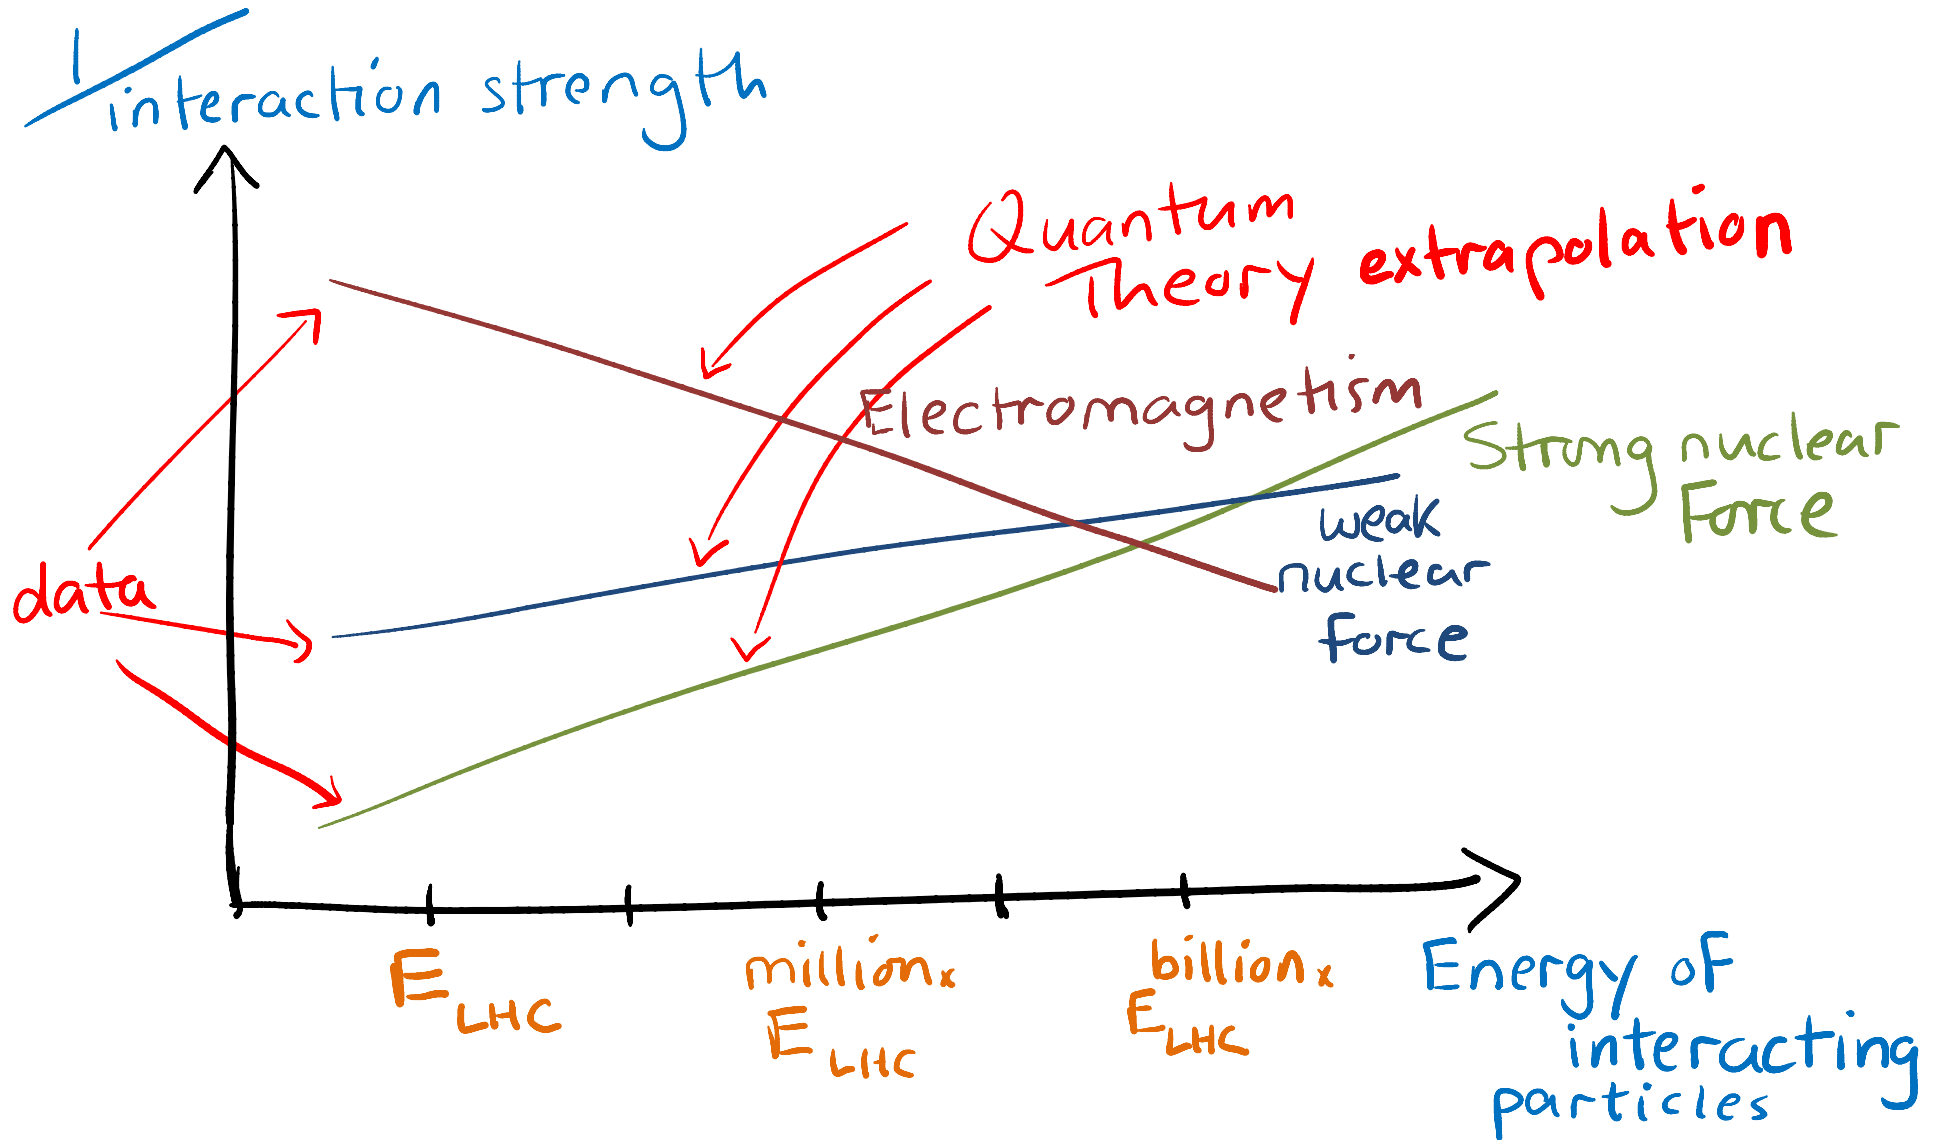 1/interaction strength
Quantum
Theory extrapolation
Electromagnetism
Strong nuclear
Force
weak
nuclear
force
data
E LHC
million x
E LHC
billion x
E LHC
Energy of
interacting
particles